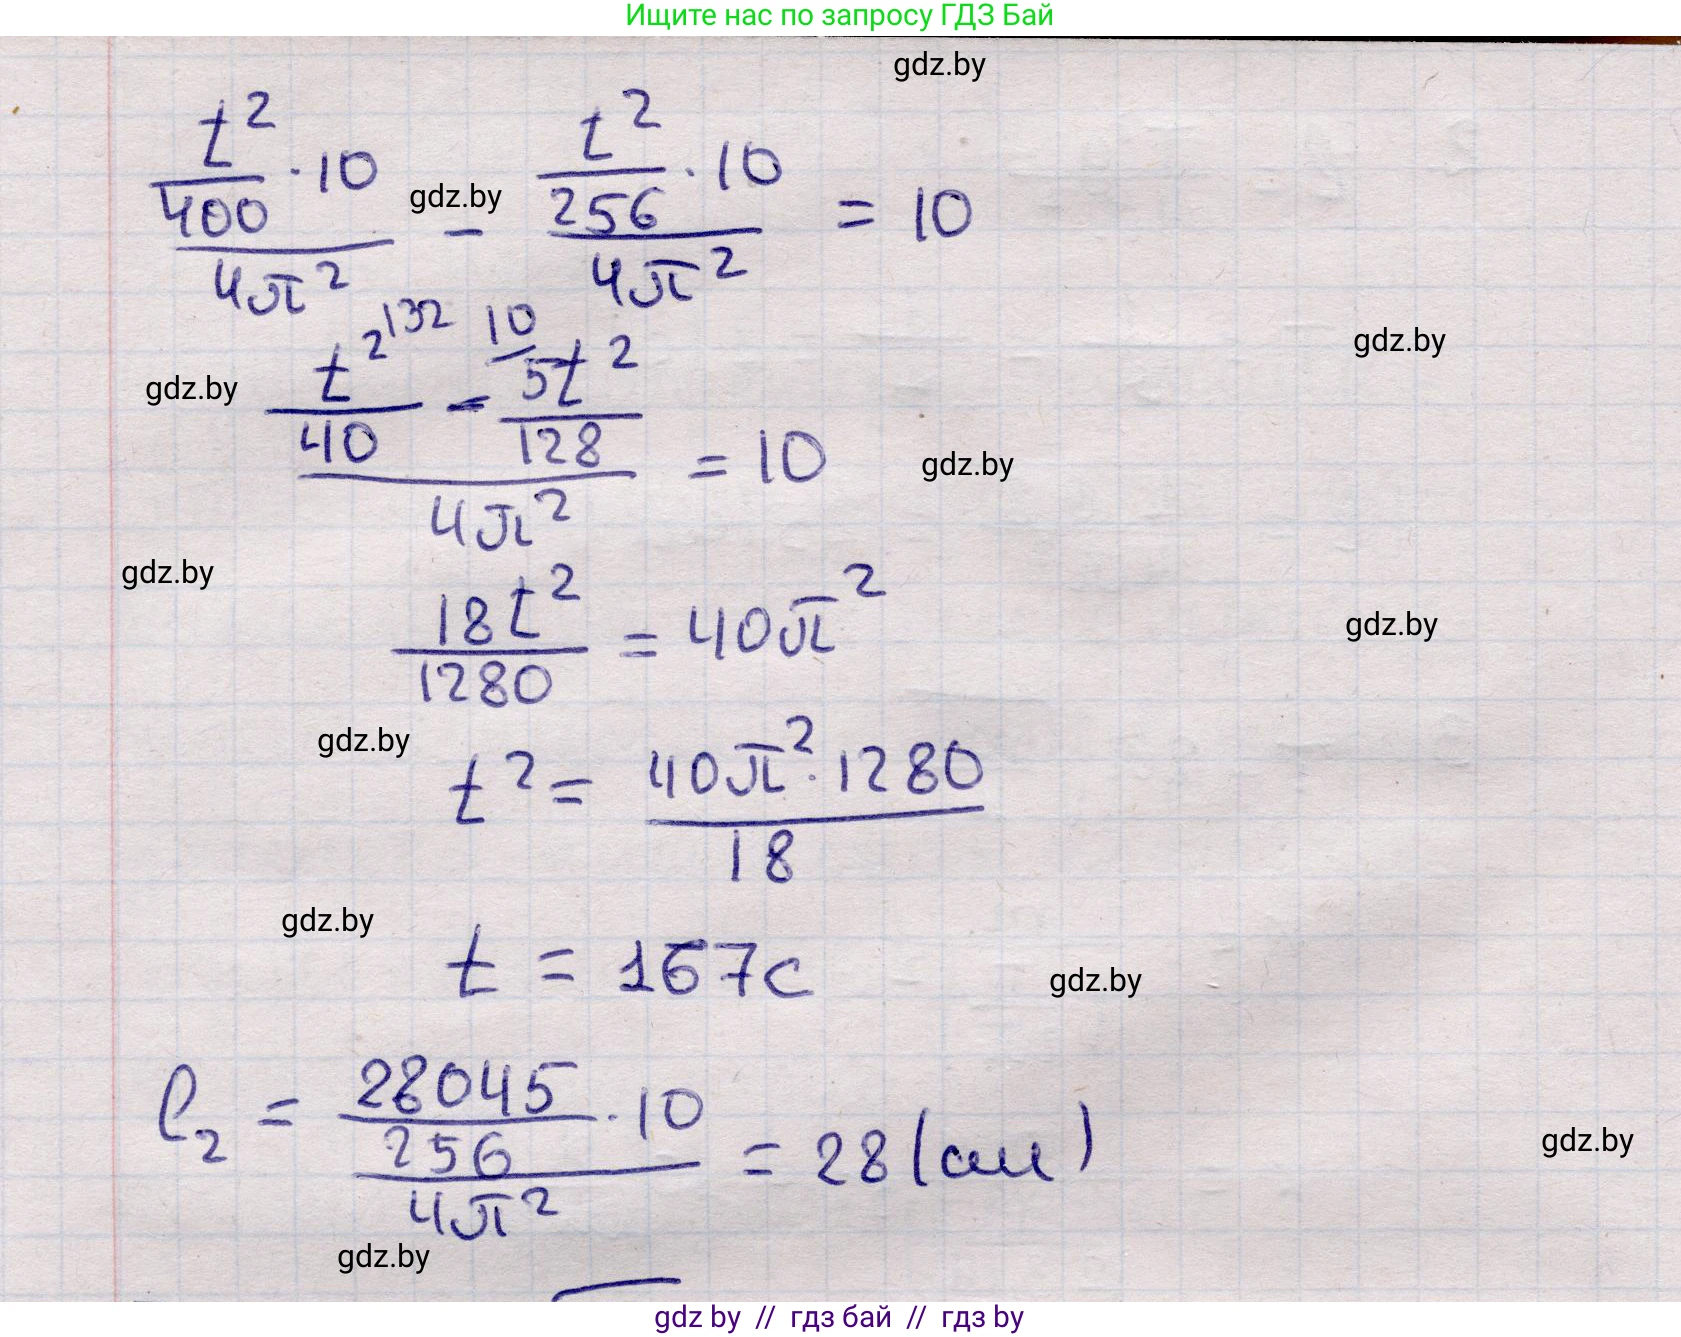 Ищите нас по запросу ГДЗ Бай
gdz.by
t²/400 · 10 / 4π² - t²/256 · 10 / 4π² = 10
gdz.by
gdz.by
t² 132 / 40 - 10/ 5t² / 128 / 4π² = 10
gdz.by
gdz.by
gdz.by
18t² / 1280 = 40π²
gdz.by
gdz.by
t² = 40π² · 1280 / 18
gdz.by
t = 167с
gdz.by
ℓ₂ = 28045/256 · 10 / 4π² = 28 (см)
gdz.by
gdz.by
gdz by // гдз бай // гдз by